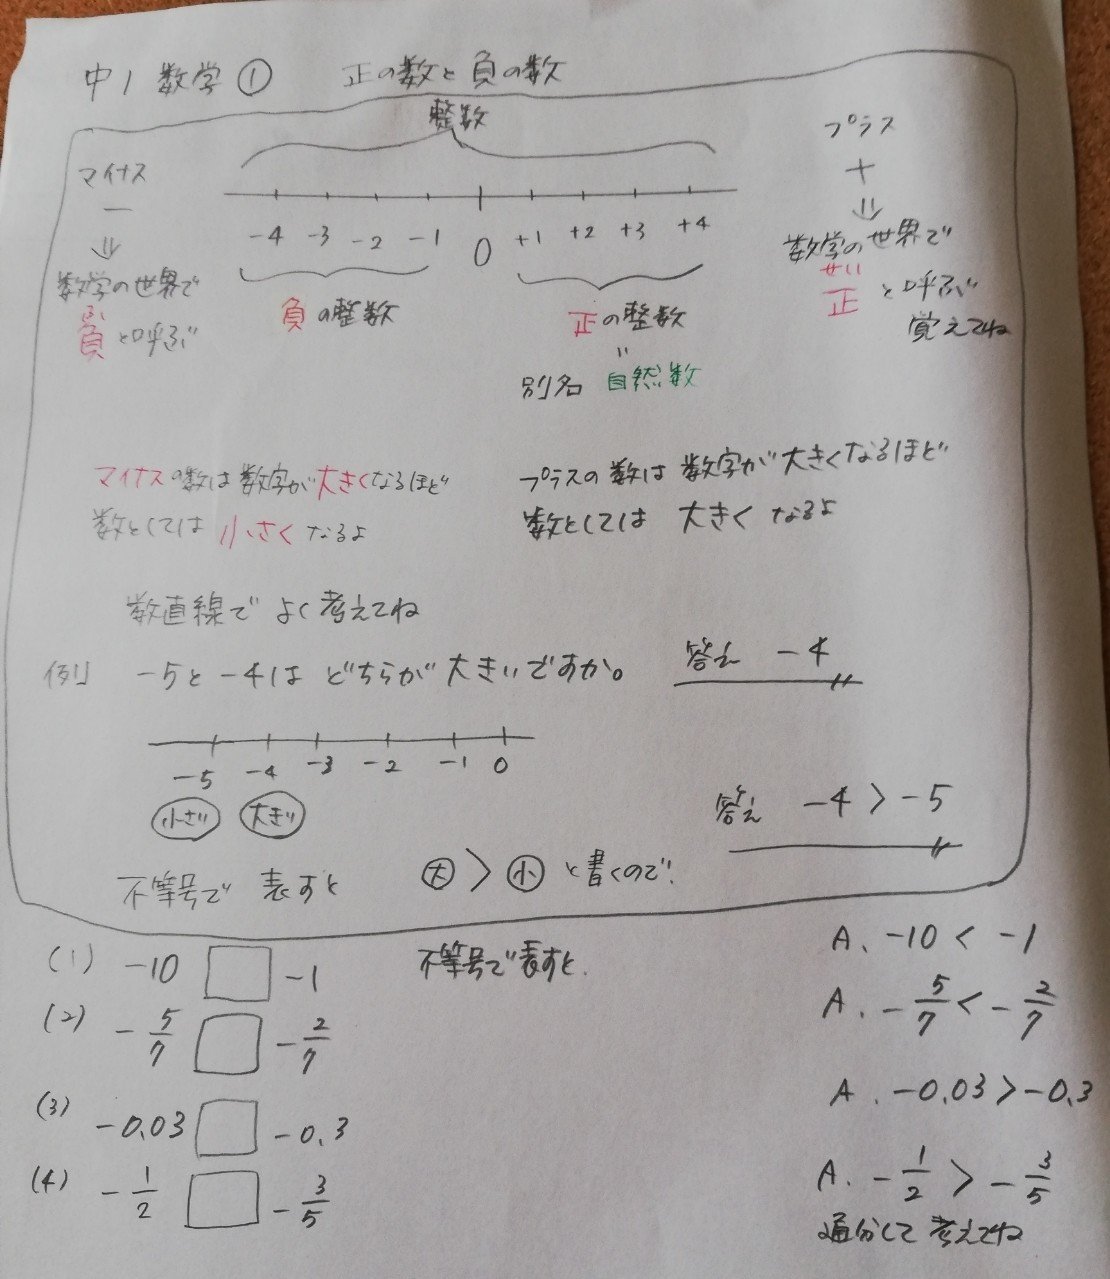 中1 数学 ① 正の数と負の数
整数
マイナス
−
⇓
数学の世界で
ふ
負と呼ぶ
-4 -3 -2 -1 0 +1 +2 +3 +4
負の整数
正の整数
〃
別名 自然数
プラス
+
⇓
数学の世界で
せい
正と呼ぶ
覚えてね
マイナスの数は数字が大きくなるほど
数としては 小さく なるよ
プラスの数は 数字が大きくなるほど
数としては 大きく なるよ
数直線で よく考えてね
例 -5と-4は どちらが 大きいですか。 答え -4
-5 -4 -3 -2 -1 0
小さい 大きい
答え -4 > -5
不等号で 表すと 大 > 小 と書くので
(1) -10 □ -1 不等号で表すと. A. -10 < -1
(2) -5/7 □ -2/7 A. -5/7 < -2/7
(3) -0.03 □ -0.3 A. -0.03 > -0.3
(4) -1/2 □ -3/5 A. -1/2 > -3/5
通分して 考えてね